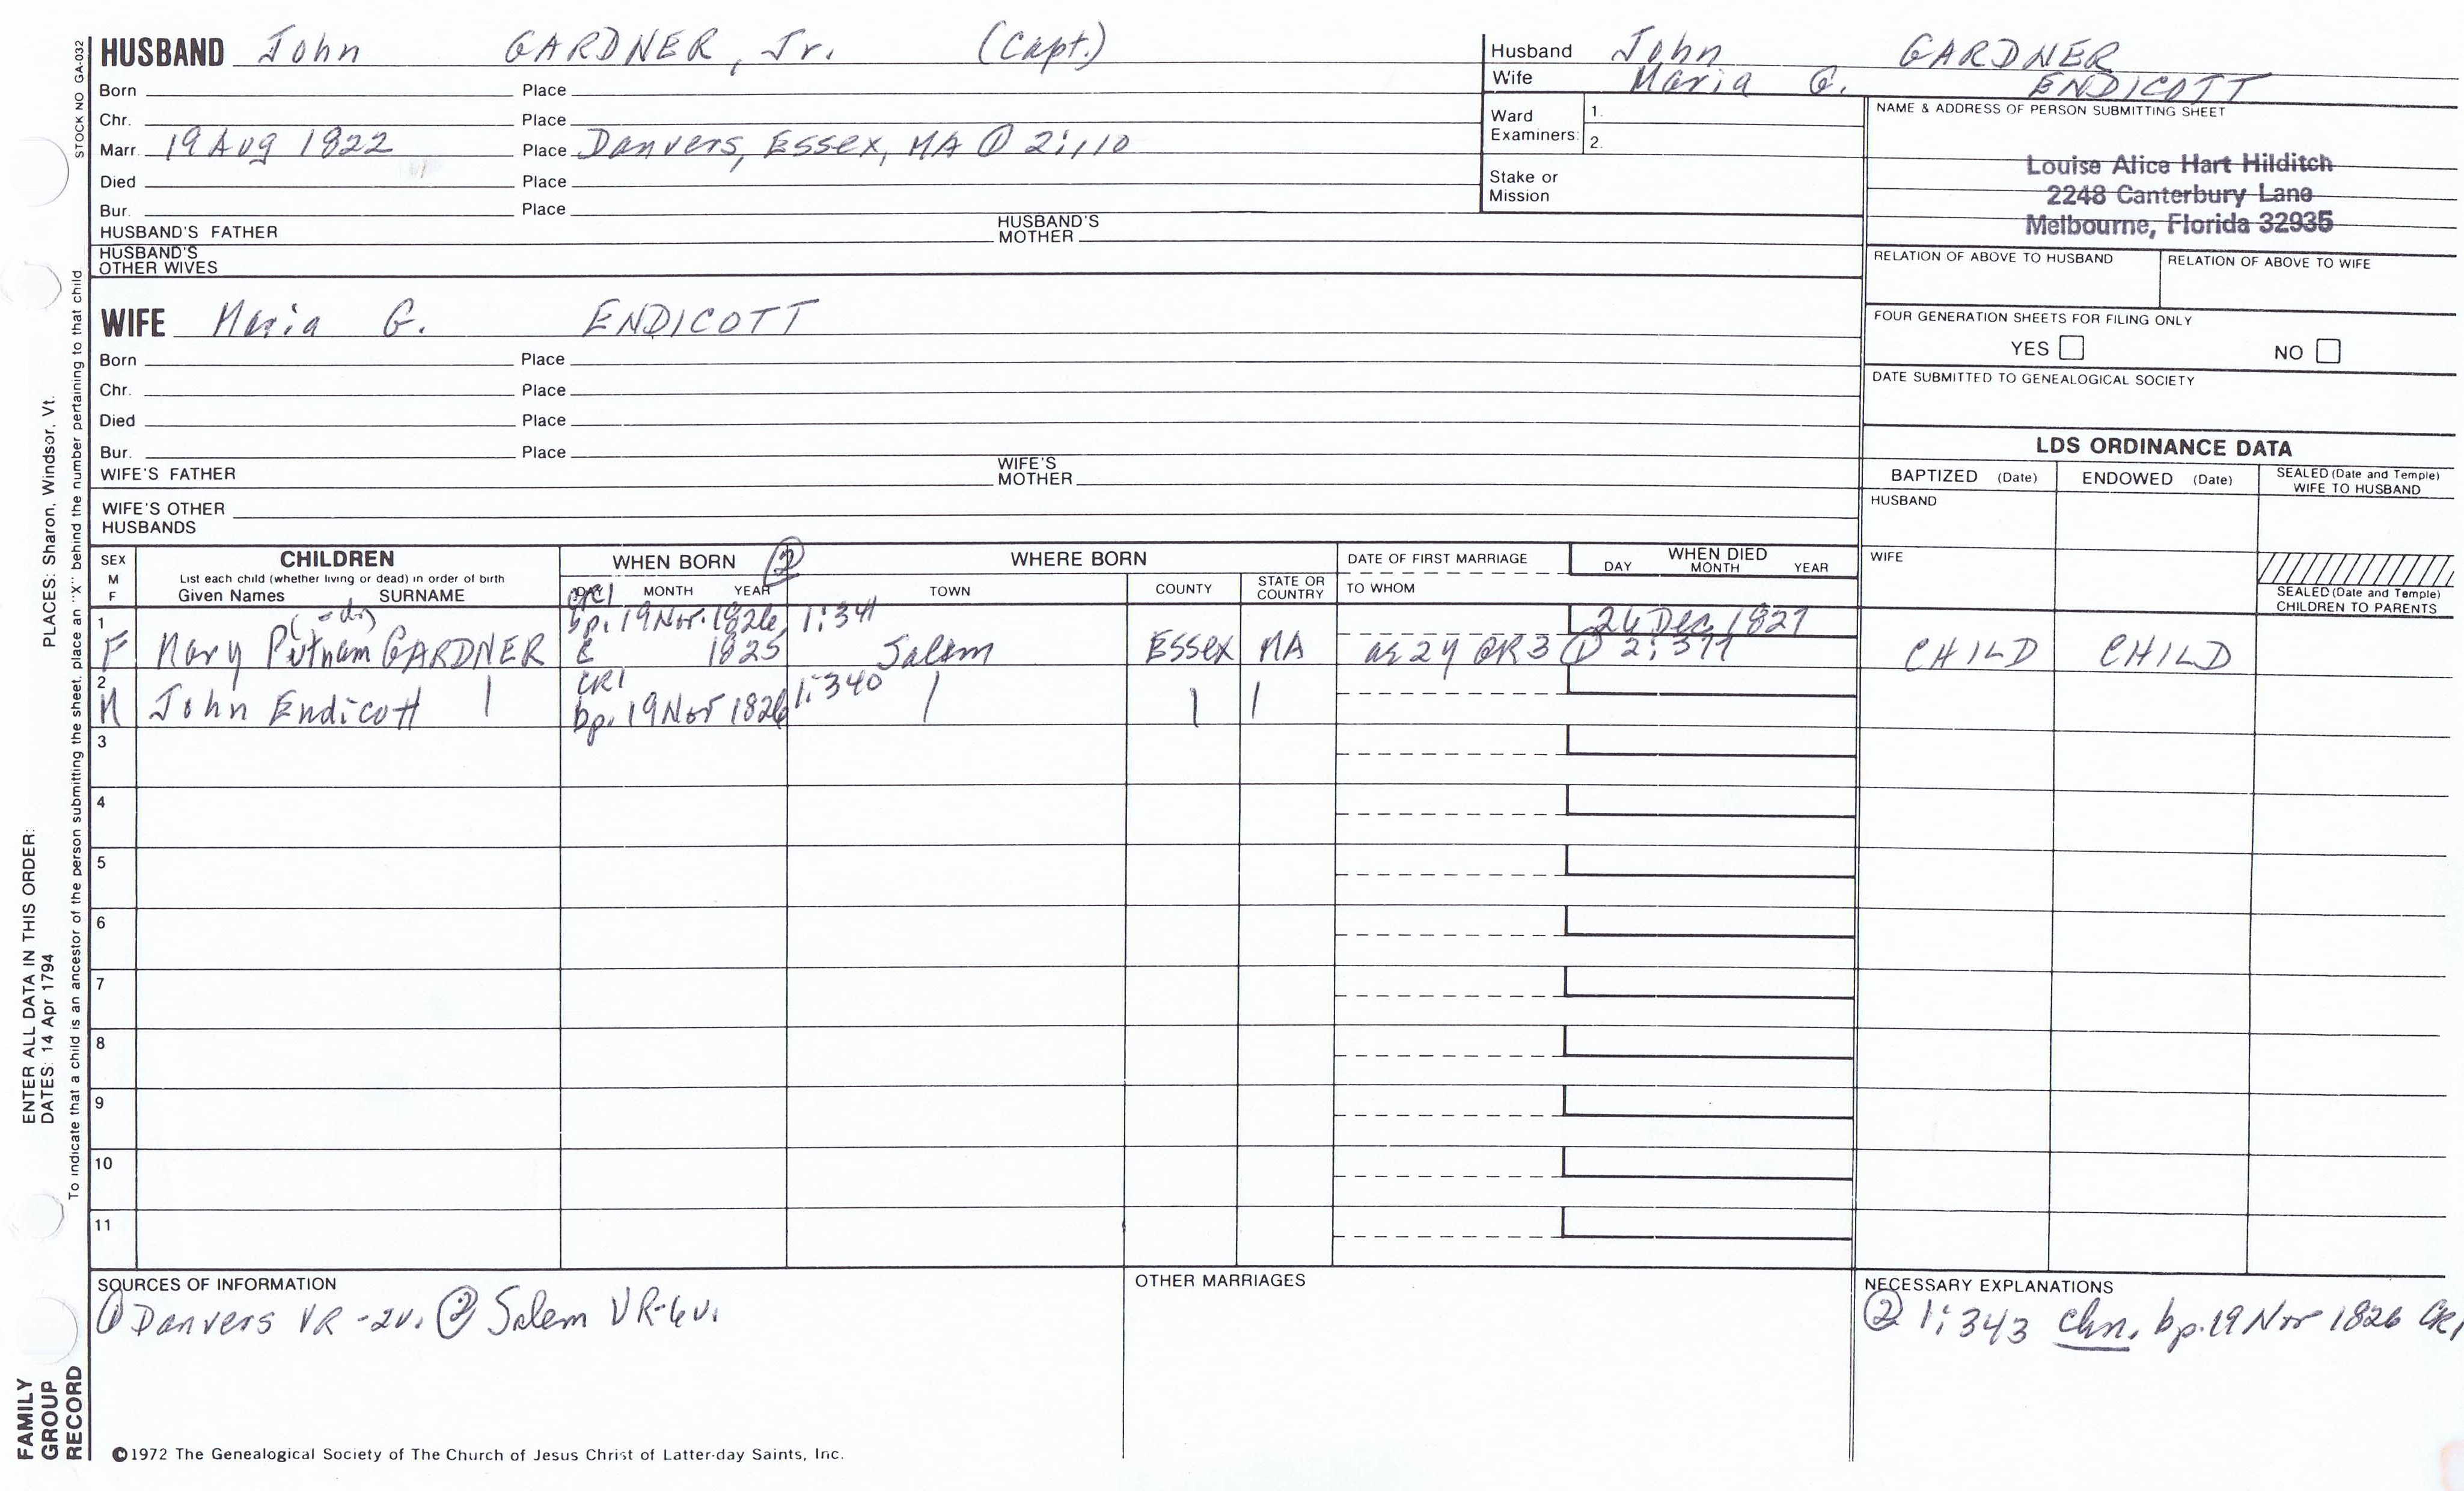 HUSBAND John GARDNER, Jr. (Capt.)
Born Place
Chr. Place
Marr. 19 Aug 1822 Place Danvers, Essex, MA ① 2:,110
Died Place
Bur. Place
HUSBAND'S FATHER HUSBAND'S MOTHER
HUSBAND'S OTHER WIVES
WIFE Maria G. ENDICOTT
Born Place
Chr. Place
Died Place
Bur. Place
WIFE'S FATHER WIFE'S MOTHER
WIFE'S OTHER HUSBANDS
Husband John GARDNER
Wife Maria G. ENDICOTT
Ward Examiners: 1.
2.
Stake or Mission
NAME & ADDRESS OF PERSON SUBMITTING SHEET
Louise Alice Hart Hilditch
2248 Canterbury Lane
Melbourne, Florida 32935
RELATION OF ABOVE TO HUSBAND RELATION OF ABOVE TO WIFE
FOUR GENERATION SHEETS FOR FILING ONLY
YES NO
DATE SUBMITTED TO GENEALOGICAL SOCIETY
LDS ORDINANCE DATA
BAPTIZED (Date) ENDOWED (Date) SEALED (Date and Temple) WIFE TO HUSBAND
HUSBAND
WIFE
SEALED (Date and Temple) CHILDREN TO PARENTS
SEX M F
CHILDREN
List each child (whether living or dead) in order of birth
Given Names SURNAME
WHEN BORN ②
DAY MONTH YEAR
WHERE BORN
TOWN COUNTY STATE OR COUNTRY
DATE OF FIRST MARRIAGE
TO WHOM
WHEN DIED
DAY MONTH YEAR
1 CR1 bp. 19 Nov. 1826 1:341 26 Dec 1827
F Mary Putnam GARDNER c 1825 Salem Essex MA ae 2y GR3 ① 2:377 CHILD CHILD
2 CR1 1:340
M John Endicott bp. 19 Nov 1826
3
4
5
6
7
8
9
10
11
SOURCES OF INFORMATION
① Danvers VR-2v. ② Salem VR-6v.
OTHER MARRIAGES
NECESSARY EXPLANATIONS
② 1:343 chn. bp. 19 Nov 1826 CR1
©1972 The Genealogical Society of The Church of Jesus Christ of Latter-day Saints, Inc.
STOCK NO GA-032
To indicate that a child is an ancestor of the person submitting the sheet, place an "X" behind the number pertaining to that child
PLACES: Sharon, Windsor, Vt.
ENTER ALL DATA IN THIS ORDER:
DATES: 14 Apr 1794
FAMILY
GROUP
RECORD